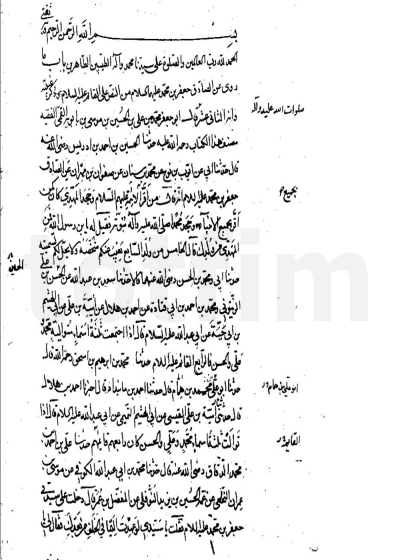 بسم الله الرحمن الرحيم
الحمد لله رب العالمين والصلوة على سيدنا محمد وآله الطيبين الطاهرين باب ما
روى عن الصادق جعفر بن محمد عليهما السلام من النص على القائم عليه السلام وذكر غيبته
وانه الثاني عشر قال ابو جعفر محمد بن علي بن الحسين بن موسى بن بابويه القمي الفقيه
مصنف هذا الكتاب رحمة الله عليه حدثنا الحسين بن احمد بن ادريس رضى الله عنه
قال حدثنا ابي عن ايوب بن نوح عن محمد بن سنان عن صفوان بن مهران عن الصادق
جعفر بن محمد عليه السلام انه قال من اقر بالائمة عليهم السلام وجحد المهدي كان كمن
اقر بجميع الانبياء وجحد محمدا صلى الله عليه وآله نبوته فقيل له يا بن رسول الله فمن
المهدي من ولدك قال الخامس من ولد السابع يغيب عنكم شخصه ولا يحل لكم تسميته
حدثنا ابي ومحمد بن الحسن رضى الله عنهما قالا حدثنا سعد بن عبد الله عن الحسن بن
ومحمد بن احمد بن ابي قتادة عن احمد بن هلال عن امية بن علي عن ابي الهيثم
بن ابي حبة عن ابي عبد الله عليه السلام قال اذا اجتمعت ثلثة اسماء متوالية محمد
وعلي والحسن فالرابع القائم عليه السلام حدثنا محمد بن ابراهيم بن اسحق رحمه الله قال
حدثنا ابو علي محمد بن همام قال حدثنا احمد بن مابنداد قال اخبرنا احمد بن هلال
قال حدثني امية بن علي القيسي عن ابي الهيثم التميمي عن ابي عبد الله عليه السلام قال اذا
توالت ثلثة اسماء محمد وعلي والحسن كان رابعهم قائمهم حدثنا علي بن احمد بن
محمد الدقاق رضى الله عنه قال حدثنا محمد بن ابي عبد الله الكوفي عن موسى بن
عمران النخعي عن عمه الحسين بن يزيد النوفلي عن المفضل بن عمر قال دخلت على سيدي
جعفر بن محمد عليه السلام فقلت يا سيدي لو عهدت الينا في الخلف من بعدك فقال لي
صلوات الله عليه وآله
بجميع